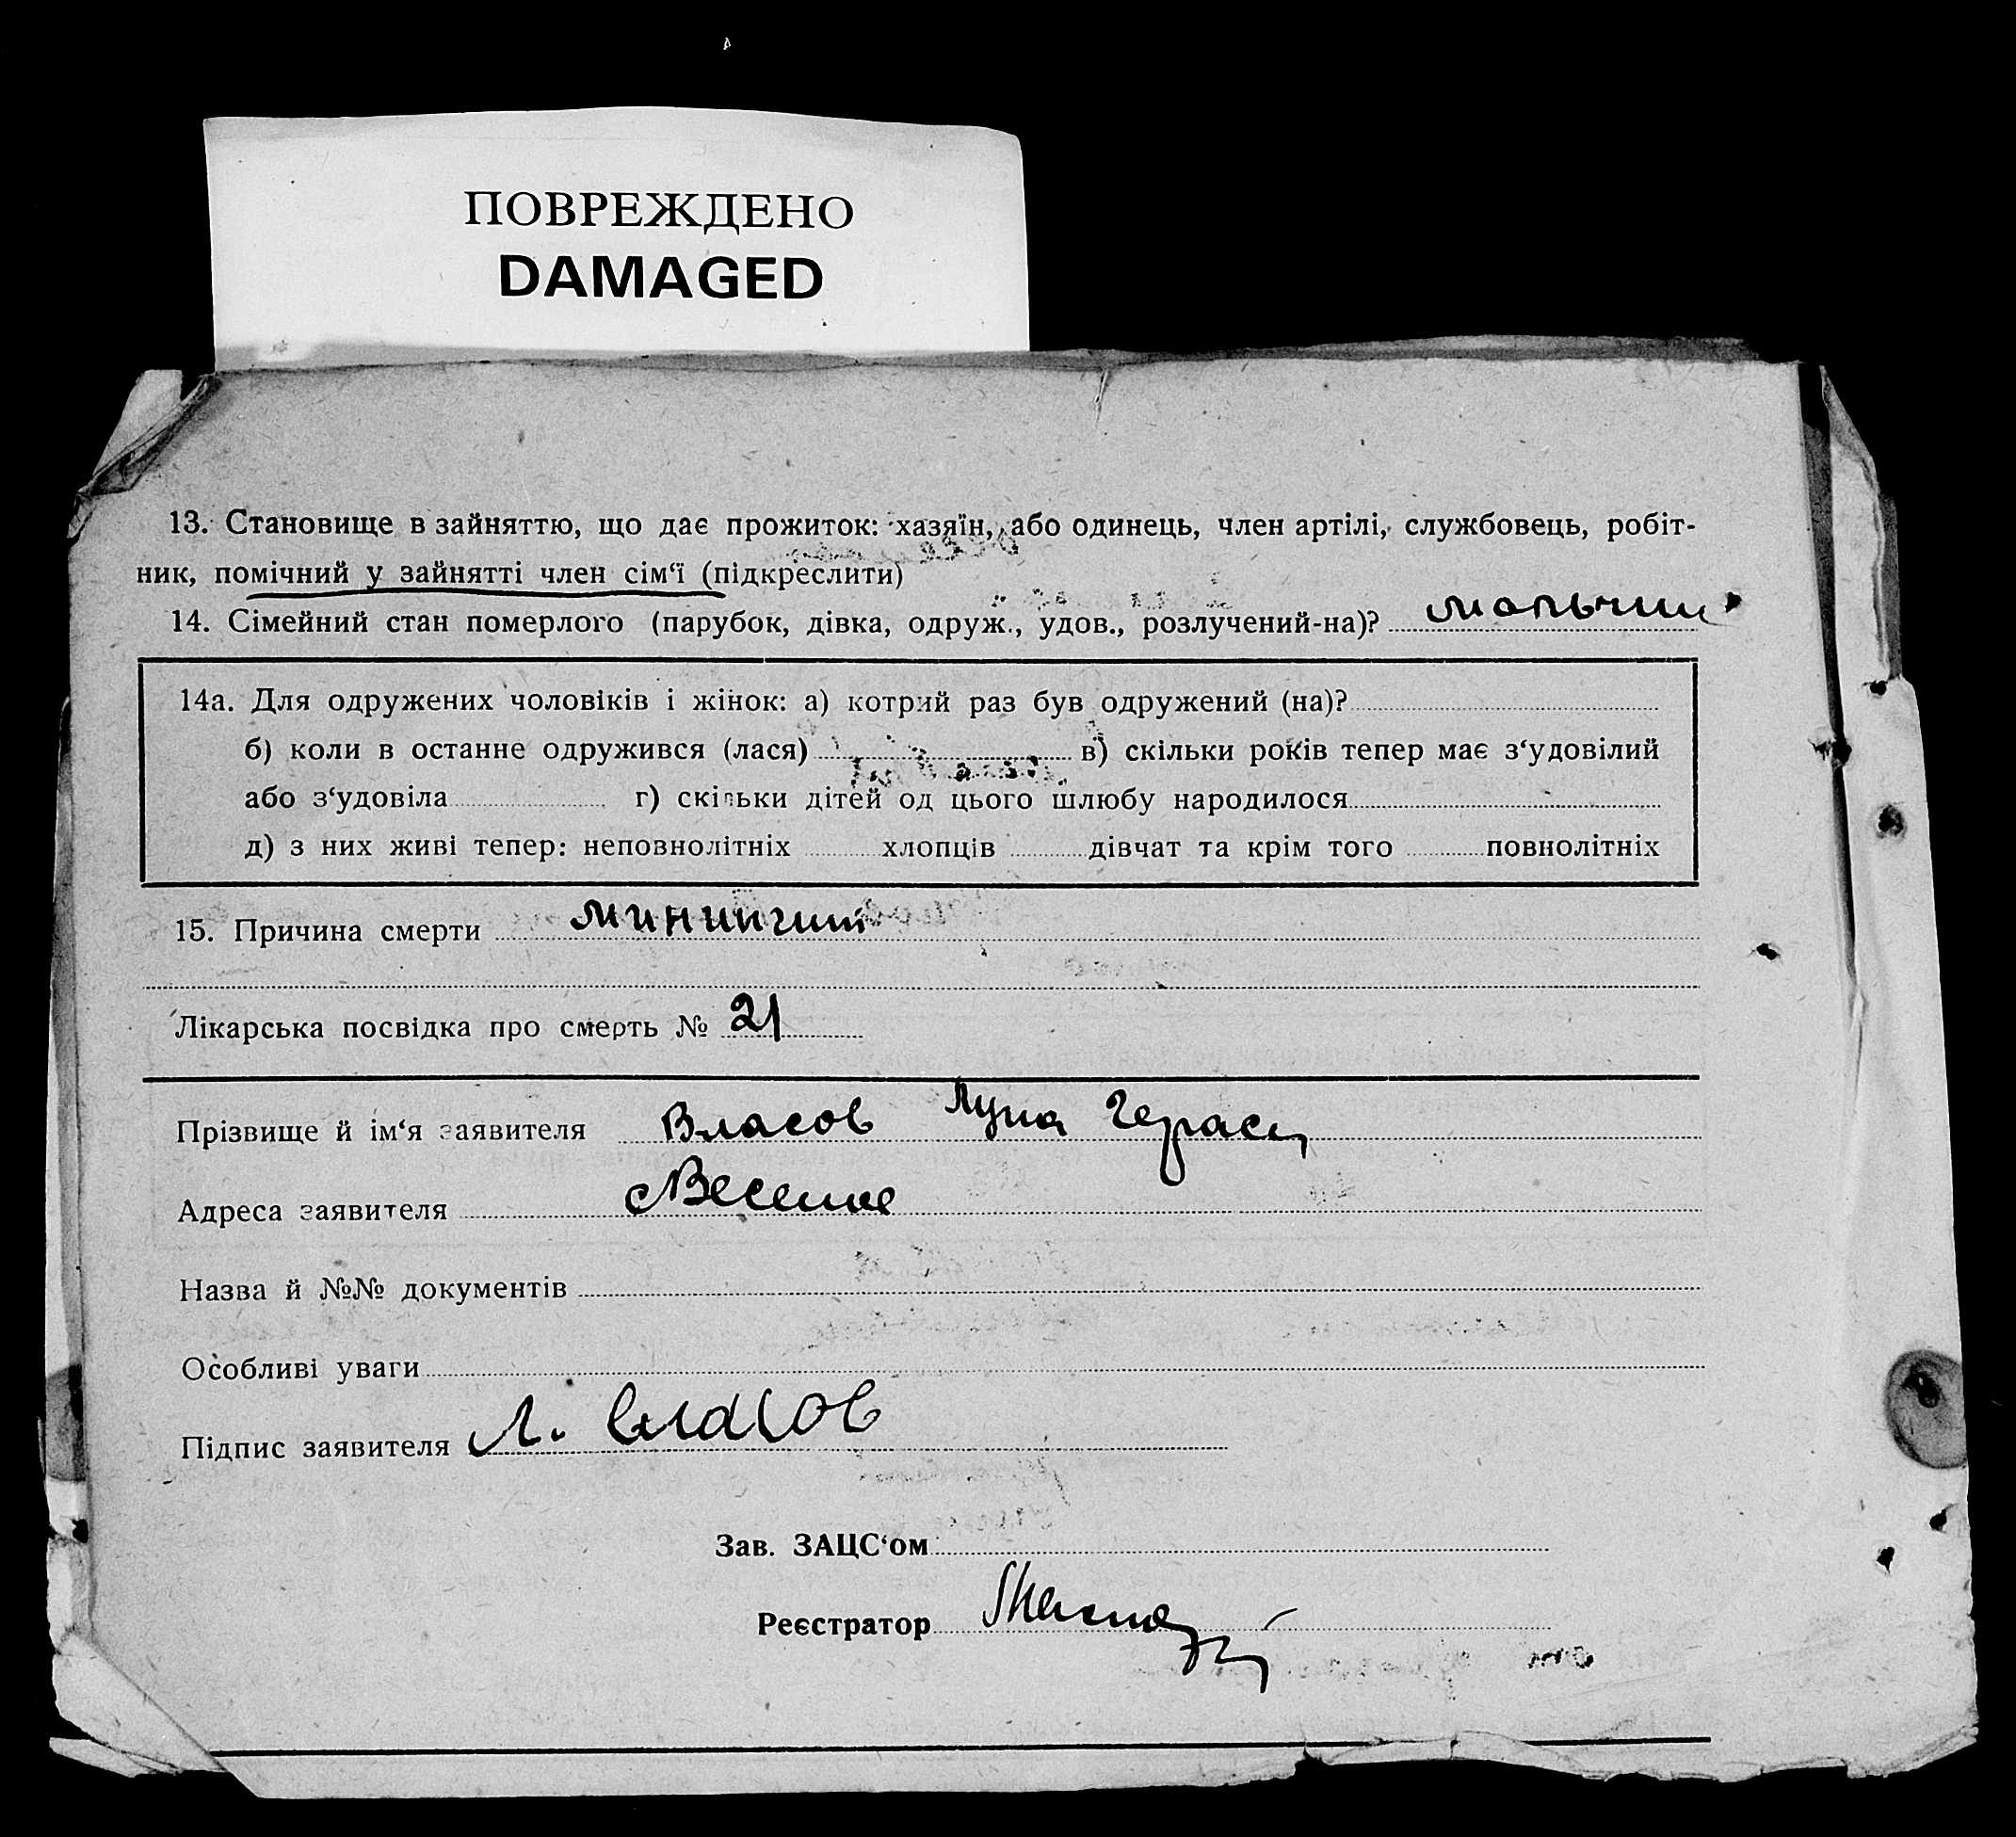 ПОВРЕЖДЕНО
DAMAGED
13. Становище в зайняттю, що дає прожиток: хазяїн, або одинець, член артілі, службовець, робіт-
ник, помічний у зайнятті член сім‘ї (підкреслити)
14. Сімейний стан померлого (парубок, дівка, одруж., удов., розлучений-на)?
14а. Для одружених чоловіків і жінок: а) котрий раз був одружений (на)?
б) коли в останне одружився (лася) в) скільки років тепер має з‘удовілий
або з‘удовіла г) скільки дітей од цього шлюбу народилося
д) з них живі тепер: неповнолітніх хлопців дівчат та крім того повнолітніх
15. Причина смерти минингит
Лікарська посвідка про смерть № 21
Прізвище й ім‘я заявителя Власов Лука Герас
Адреса заявителя с Веселое
Назва й №№ документів
Особливі уваги
Підпис заявителя Л. Власов
Зав. ЗАЦС‘ом
Реєстратор